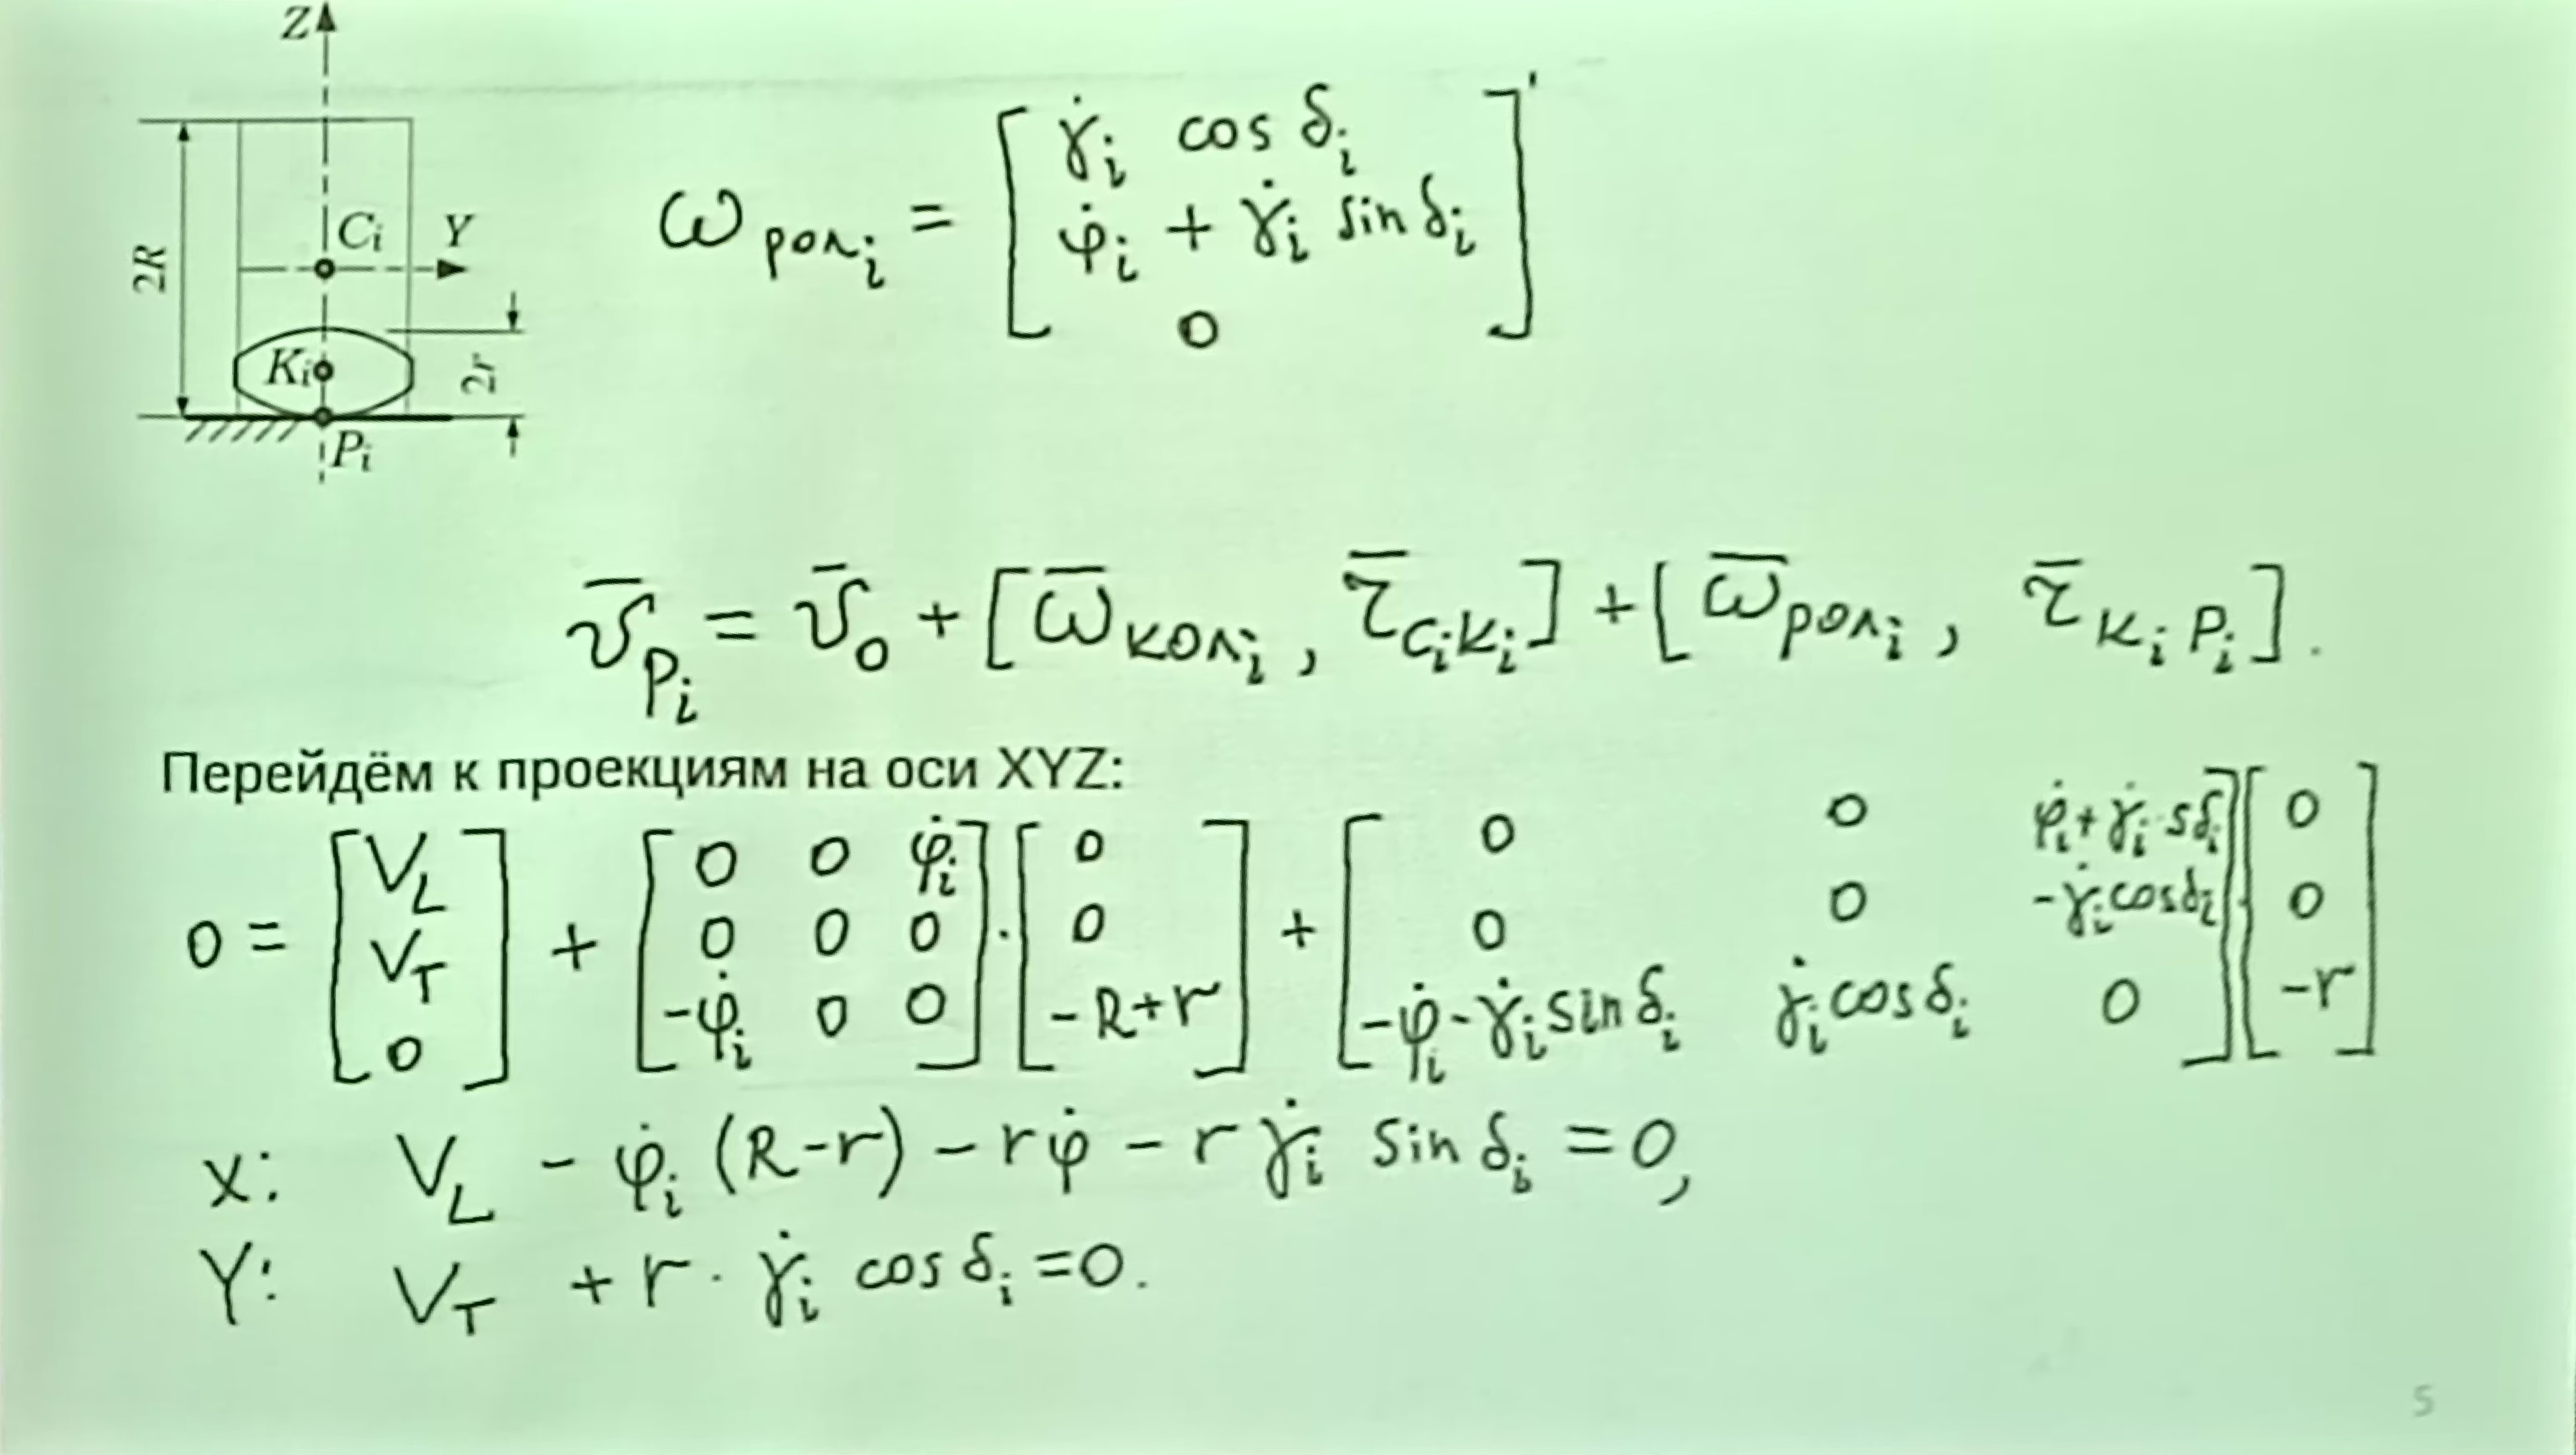 Z
2R
Cᵢ Y
Kᵢ
2r
Pᵢ
ω_ролᵢ = [ γ̇ᵢ cos δᵢ
φ̇ᵢ + γ̇ᵢ sin δᵢ
0 ]'
v̄_Pᵢ = v̄₀ + [ω̄_колᵢ, τ̄_CᵢKᵢ] + [ω̄_ролᵢ, τ̄_KᵢPᵢ].
Перейдём к проекциям на оси XYZ:
0 = [V_L; V_T; 0] + [0 0 φ̇ᵢ; 0 0 0; -φ̇ᵢ 0 0] · [0; 0; -R+r] + [0 0 φ̇ᵢ+γ̇ᵢ·sδᵢ; 0 0 -γ̇ᵢcosδᵢ; -φ̇ᵢ-γ̇ᵢ sin δᵢ γ̇ᵢ cos δᵢ 0] · [0; 0; -r]
X: V_L - φ̇ᵢ (R-r) - rφ̇ - r γ̇ᵢ sin δᵢ = 0,
Y: V_T + r · γ̇ᵢ cos δᵢ = 0.
5